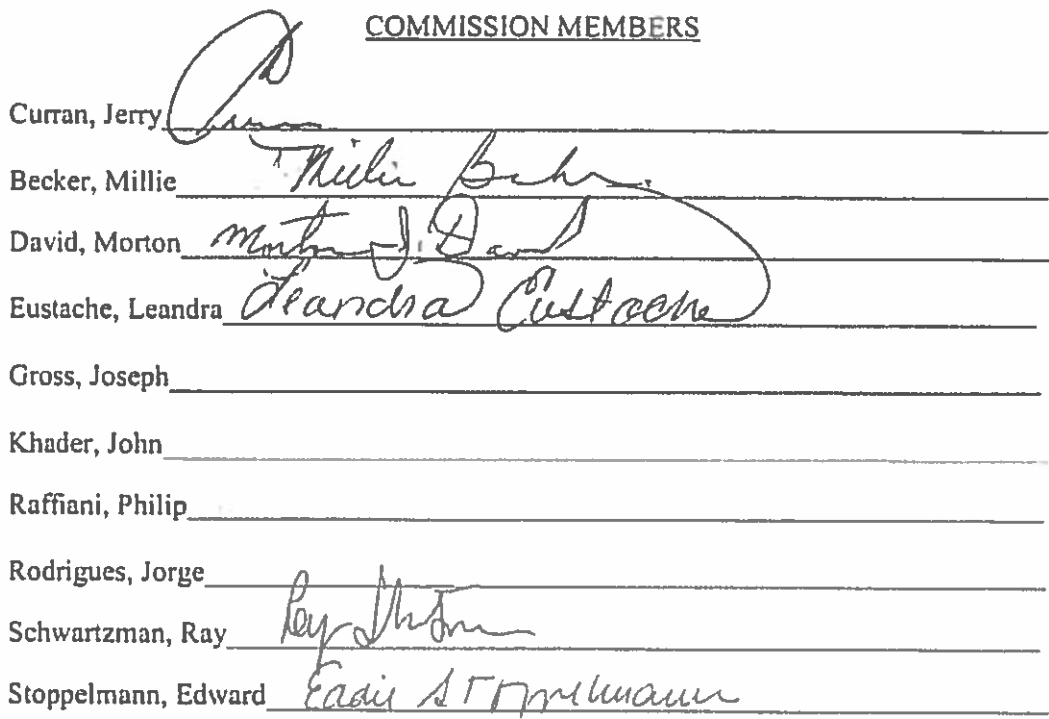 COMMISSION MEMBERS
Curran, Jerry
Becker, Millie Millie
David, Morton Morton J. David
Eustache, Leandra Leandra Eustache
Gross, Joseph
Khader, John
Raffiani, Philip
Rodrigues, Jorge
Schwartzman, Ray Ray
Stoppelmann, Edward Eddie Stoppelmann